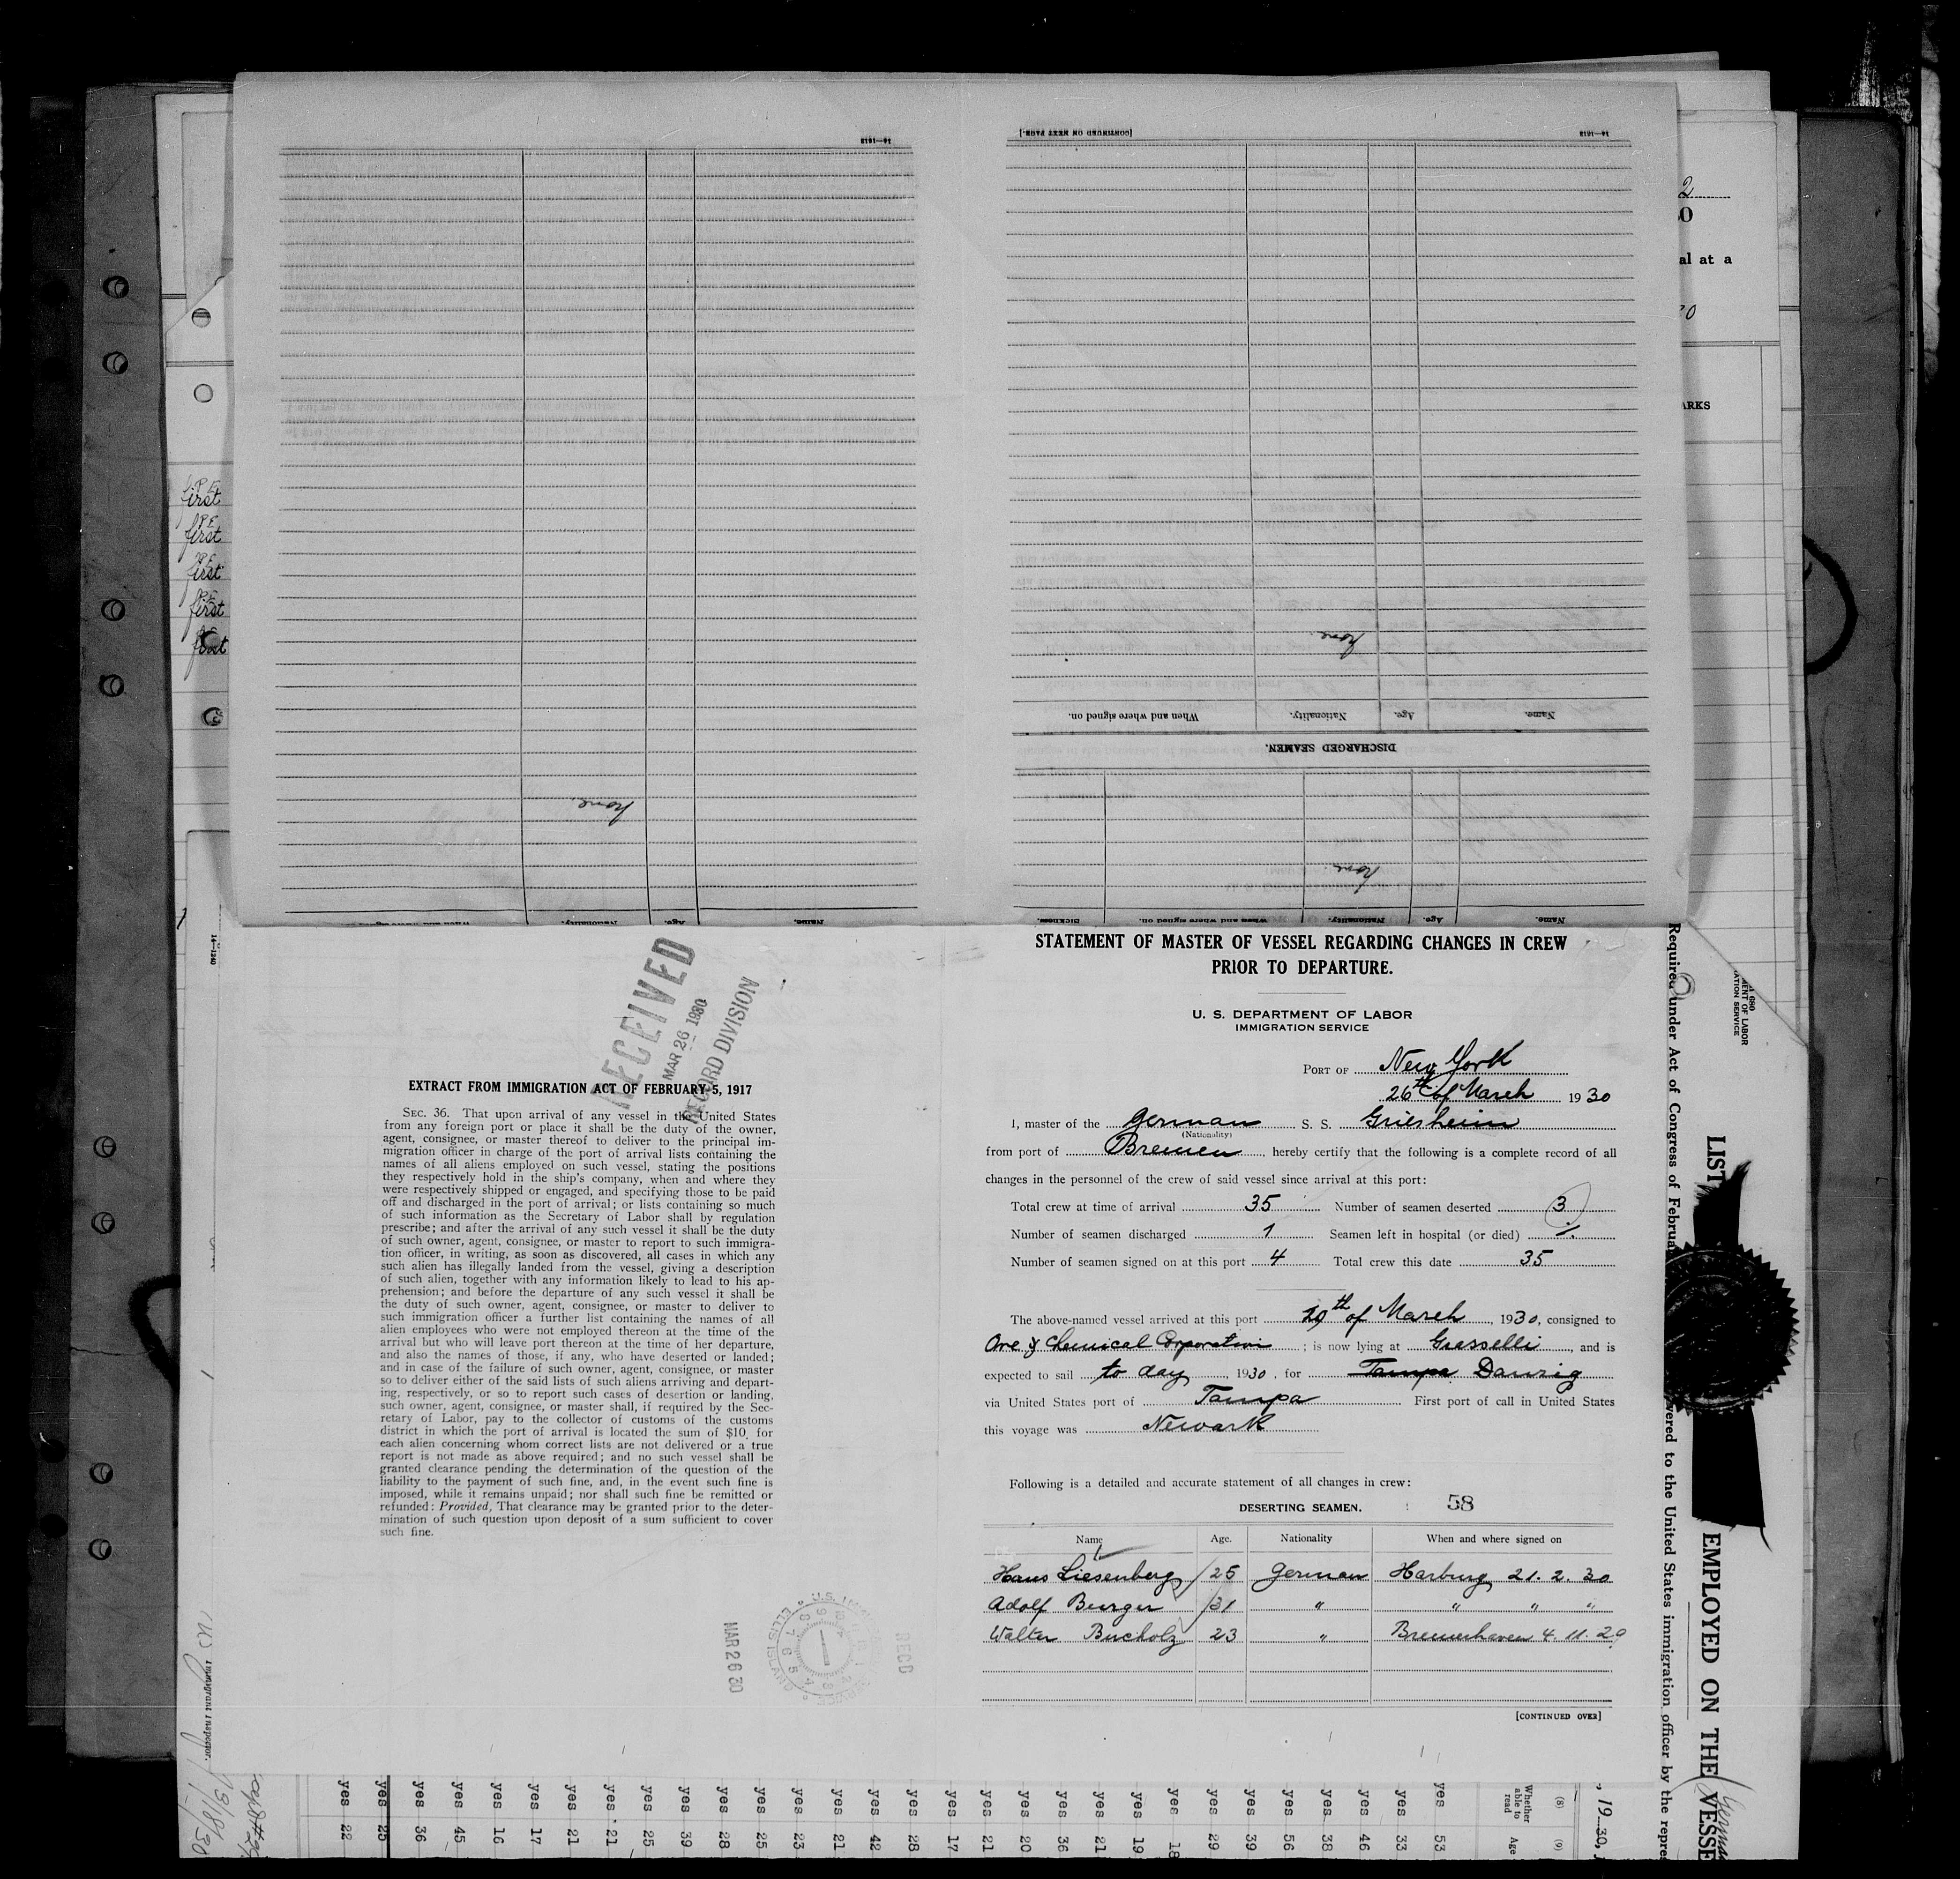 [CONTINUED ON NEXT PAGE.]
14—1312
14—1312
none.
When and where signed on.
Nationality.
Age.
Name.
DISCHARGED SEAMEN.
none.
none.
Sickness.
When and where signed on.
Nationality.
Age.
Name.
When and where signed on.
Nationality.
Age.
Name.
2
al at a
ARKS
P E
first
P E
first
P E
first
P E
first
first
14—1240
RECEIVED
MAR 26 1930
RECORD DIVISION
EXTRACT FROM IMMIGRATION ACT OF FEBRUARY 5, 1917
SEC. 36. That upon arrival of any vessel in the United States
from any foreign port or place it shall be the duty of the owner,
agent, consignee, or master thereof to deliver to the principal im-
migration officer in charge of the port of arrival lists containing the
names of all aliens employed on such vessel, stating the positions
they respectively hold in the ship's company, when and where they
were respectively shipped or engaged, and specifying those to be paid
off and discharged in the port of arrival; or lists containing so much
of such information as the Secretary of Labor shall by regulation
prescribe; and after the arrival of any such vessel it shall be the duty
of such owner, agent, consignee, or master to report to such immigra-
tion officer, in writing, as soon as discovered, all cases in which any
such alien has illegally landed from the vessel, giving a description
of such alien, together with any information likely to lead to his ap-
prehension; and before the departure of any such vessel it shall be
the duty of such owner, agent, consignee, or master to deliver to
such immigration officer a further list containing the names of all
alien employees who were not employed thereon at the time of the
arrival but who will leave port thereon at the time of her departure,
and also the names of those, if any, who have deserted or landed;
and in case of the failure of such owner, agent, consignee, or master
so to deliver either of the said lists of such aliens arriving and depart-
ing, respectively, or so to report such cases of desertion or landing,
such owner, agent, consignee, or master shall, if required by the Sec-
retary of Labor, pay to the collector of customs of the customs
district in which the port of arrival is located the sum of $10 for
each alien concerning whom correct lists are not delivered or a true
report is not made as above required; and no such vessel shall be
granted clearance pending the determination of the question of the
liability to the payment of such fine, and, in the event such fine is
imposed, while it remains unpaid; nor shall such fine be remitted or
refunded: Provided, That clearance may be granted prior to the deter-
mination of such question upon deposit of a sum sufficient to cover
such fine.
MAR 26 30
ELLIS ISLAND
RECD
STATEMENT OF MASTER OF VESSEL REGARDING CHANGES IN CREW
PRIOR TO DEPARTURE.
U. S. DEPARTMENT OF LABOR
IMMIGRATION SERVICE
PORT OF New York
26th of March 1930
I, master of the german S. S. Griesheim
(Nationality)
from port of Bremen, hereby certify that the following is a complete record of all
changes in the personnel of the crew of said vessel since arrival at this port:
Total crew at time of arrival 35 Number of seamen deserted 3
Number of seamen discharged 1 Seamen left in hospital (or died) /.
Number of seamen signed on at this port 4 Total crew this date 35
The above-named vessel arrived at this port th of March, 1930, consigned to
Ore & Chemical Corporation; is now lying at Grasselli, and is
expected to sail to day, 1930, for Tampa Danzig
via United States port of Tampa First port of call in United States
this voyage was Newark
Following is a detailed and accurate statement of all changes in crew:
DESERTING SEAMEN. 58
Name Age. Nationality When and where signed on
Hans Liesenberg 25 German Harburg 21. 2. 30
Adolf Burger 31 " " " "
Walter Bucholz 23 " Bremerhaven 4. 11. 29
[CONTINUED OVER]
Required under Act of Congress of Februa
vered to the United States immigration officer by the repres
LIST
EMPLOYED ON THE VESSE
German
680
MENT OF LABOR
ATION SERVICE
Immigrant Inspector.
3/18/30
, 19 30,
(8) Whether able to read
(9) Age
yes 53
yes 33
yes 46
yes 38
yes 56
yes 39
yes 29
yes 18
yes 19
yes 21
yes 36
yes 20
yes 21
yes 17
yes 28
yes 42
yes 21
yes 23
yes 25
yes 28
yes 39
yes 25
yes 21
yes 21
yes 17
yes 16
yes 45
yes 36
yes 25
yes 22